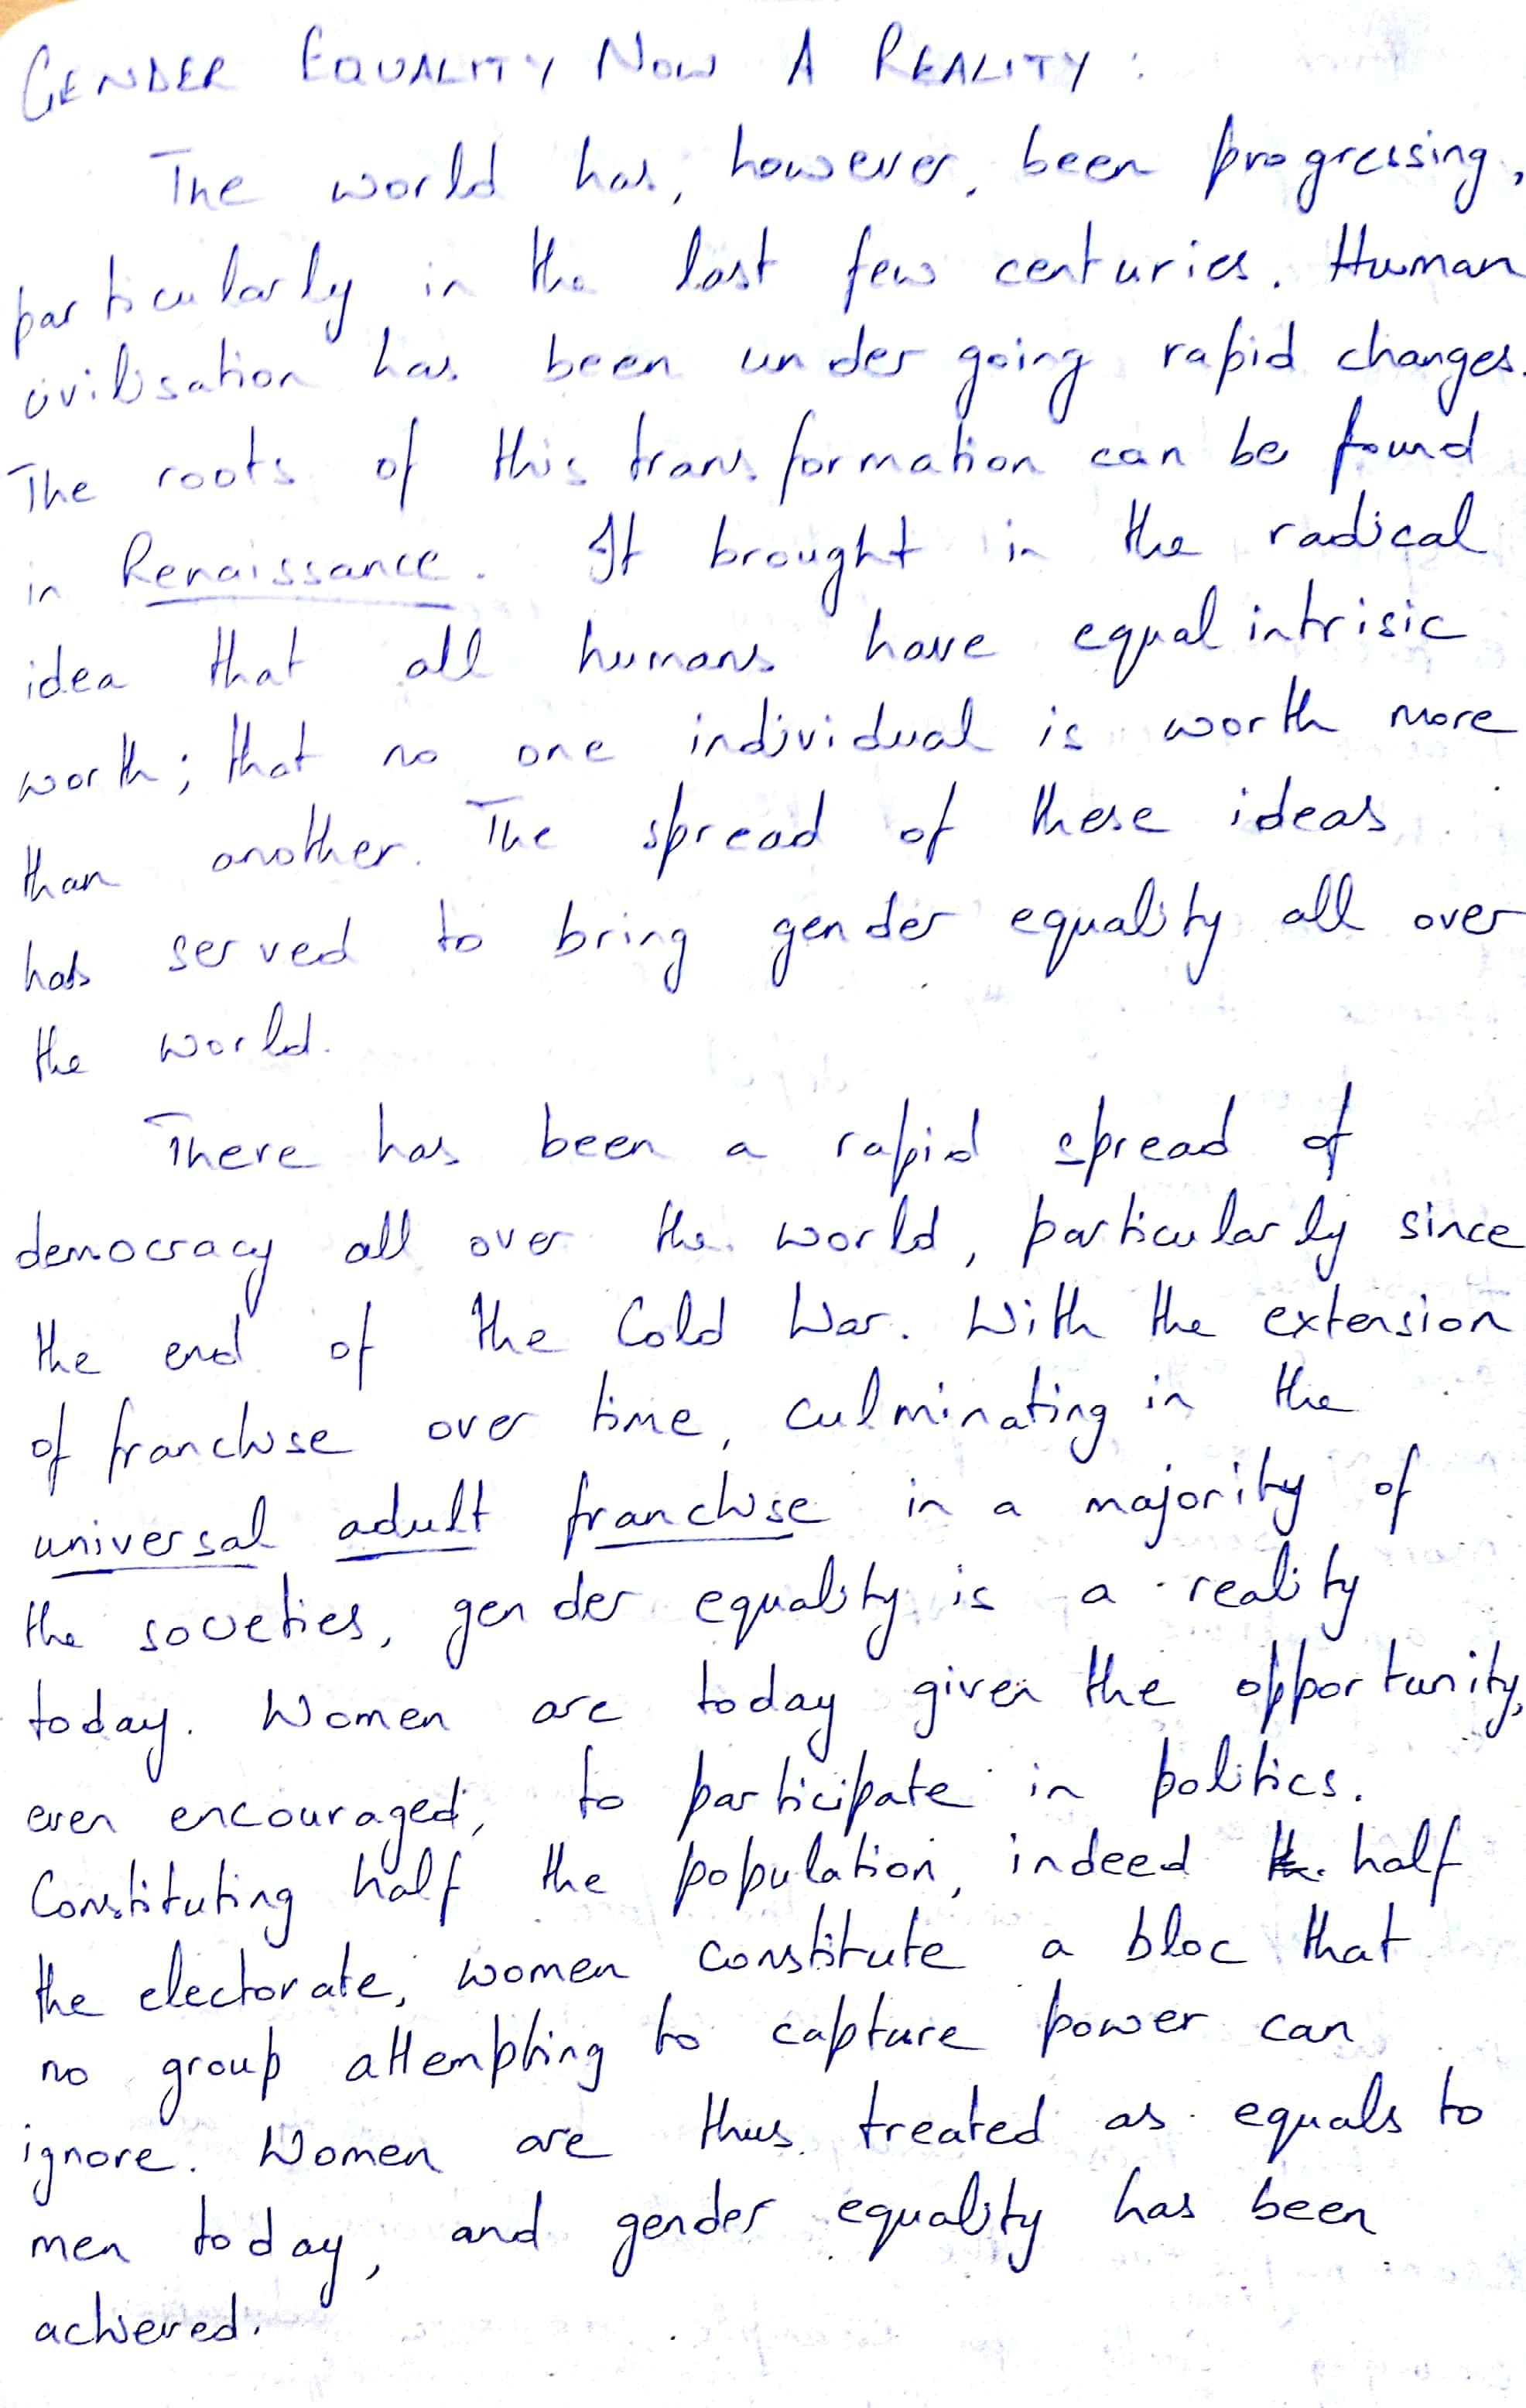 GENDER EQUALITY NOW A REALITY :
The world has, however, been progressing,
particularly in the last few centuries. Human
civilisation has been undergoing rapid changes.
The roots of this transformation can be found
in Renaissance. It brought in the radical
idea that all humans have equal intrisic
worth; that no one individual is worth more
than another. The spread of these ideas
has served to bring gender equality all over
the world.
There has been a rapid spread of
democracy all over the world, particularly since
the end of the Cold War. With the extension
of franchise over time, culminating in the
universal adult franchise in a majority of
the societies, gender equality is a reality
today. Women are today given the opportunity,
even encouraged, to participate in politics.
Constituting half the population, indeed half
the electorate, women constitute a bloc that
no group attempting to capture power can
ignore. Women are thus treated as equals to
men today, and gender equality has been
achieved.